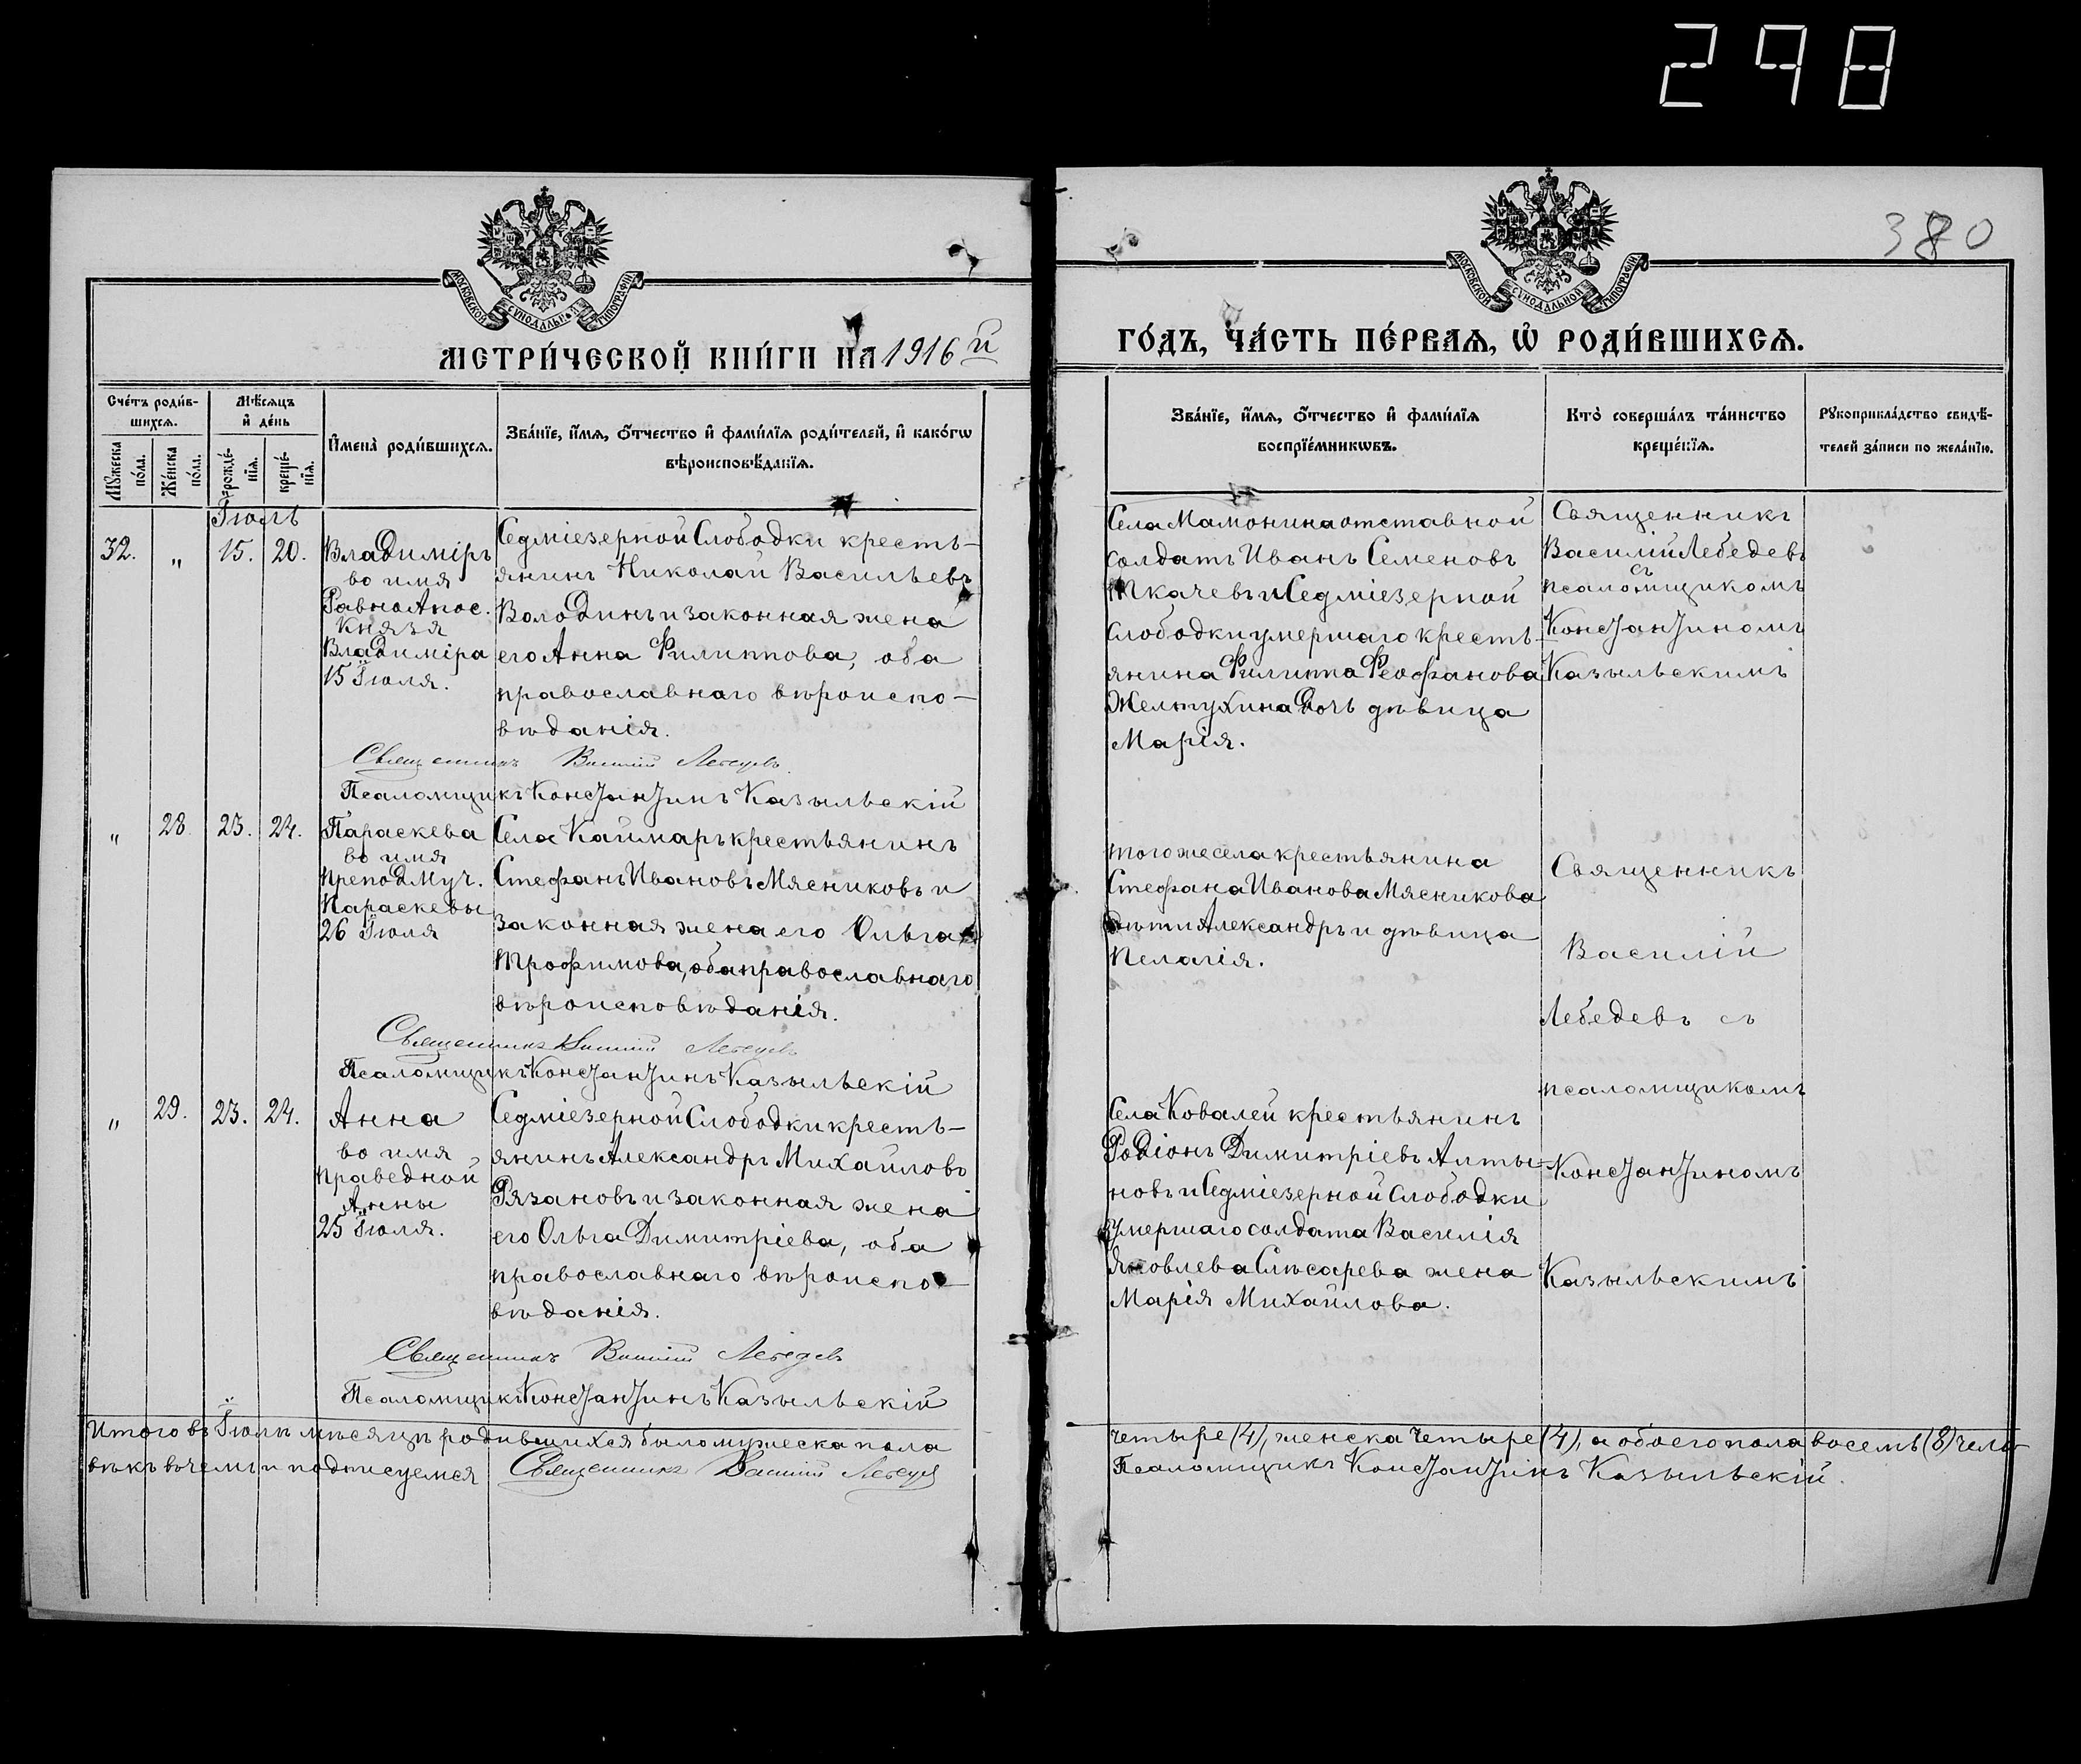 298
380
МОСКОВСКОЙ СѴНОДАЛЬНОЙ ТИПОГРАФІИ
МОСКОВСКОЙ СѴНОДАЛЬНОЙ ТИПОГРАФІИ
МЕТРИ́ЧЕСКОЙ КНИ́ГИ НА 1916й
ГО́ДЪ, ЧА́СТЬ ПЕ́РВАЯ, Ѡ҆ РОДИ́ВШИХСЯ.
Сче́тъ роди́в-
шихся.
Мꙋ́жеска по́ла.
Же́нска по́ла.
Мѣ́сяцъ
и҆ де́нь
рожде́-
нїя.
креще́-
нїя.
И҆мена̀ роди́вшихся.
Зва́нїе, и҆́мя, ѻ҆́тчество и҆ фами́лїя роди́телей, и҆ како́гѡ
вѣроисповѣ́данїя.
Зва́нїе, и҆́мя, ѻ҆́тчество и҆ фами́лїя
воспрїе́мникѡвъ.
Кто̀ соверша́лъ та́инство
креще́нїя.
Рꙋкоприкла́дство свидѣ́-
телей за́писи по жела́нїю.
Іюль
32. „ 15. 20.
Владиміръ
во имя
РавноАпос.
Князя
Владиміра
15 Іюля.
Седміезерной Слободки кресть-
янинъ Николай Васильевъ
Володинъ и законная жена
его Анна Филиппова, оба
православнаго вѣроиспо-
вѣданія.
Священникъ Василій Лебедевъ
Псаломщикъ Константинъ Казыльскій
Села Мамонина отставной
солдатъ Иванъ Семеновъ
Ткачевъ и Седміезерной
Слободки умершаго кресть-
янина Филиппа Феофанова
Желтухина дочь дѣвица
Марія.
Священникъ
Василій Лебедевъ
съ
псаломщикомъ
Константиномъ
Казыльскимъ
„ 28. 23. 24.
Параскева
во имя
ПреподМуч.
Параскевы
26 Іюля
Села Каймаръ крестьянинъ
Стефанъ Ивановъ Мясниковъ и
законная жена его Ольга
Трофимова, оба православнаго
вѣроисповѣданія.
Священникъ Василій Лебедевъ
Псаломщикъ Константинъ Казыльскій
того же села крестьянина
Стефана Иванова Мясникова
дѣти Александръ и дѣвица
Пелагія.
Священникъ
Василій
Лебедевъ съ
псаломщикомъ
Константиномъ
Казыльскимъ
„ 29. 23. 24.
Анна
во имя
праведной
Анны
25 Іюля.
Седміезерной Слободки кресть-
янинъ Александръ Михайловъ
Рязановъ и законная жена
его Ольга Димитріева, оба
православнаго вѣроиспо-
вѣданія.
Священникъ Василій Лебедевъ
Псаломщикъ Константинъ Казыльскій
Села Ковалей крестьянинъ
Родіонъ Димитріевъ Алты-
новъ и Седміезерной Слободки
умершаго солдата Василія
Яковлева Слѣсарева жена
Марія Михайлова.
Итого въ Іюлѣ мѣсяцѣ родившихся было мужеска пола
четыре (4), женска четыре (4), а обоего пола восемь (8) чело-
вѣкъ въ чемъ и подписуемся Священникъ Василій Лебедевъ
Псаломщикъ Константинъ Казыльскій.